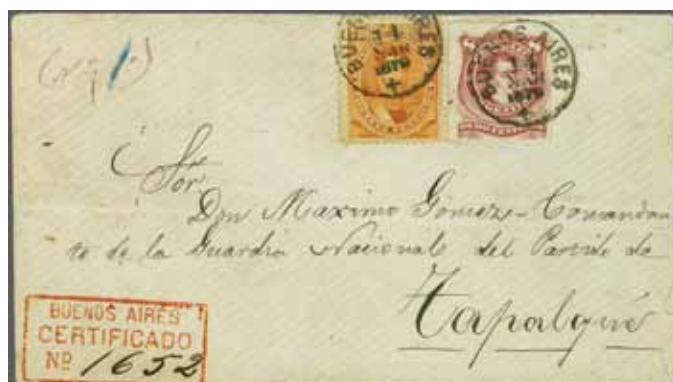 BUENOS AIRES
1879
BUENOS AIRES
1879
Sor
Don Maximo Gomez - Comandan
te de la Guardia Nacional del Partido de
Tapalqué
BUENOS AIRES
CERTIFICADO
No 1652